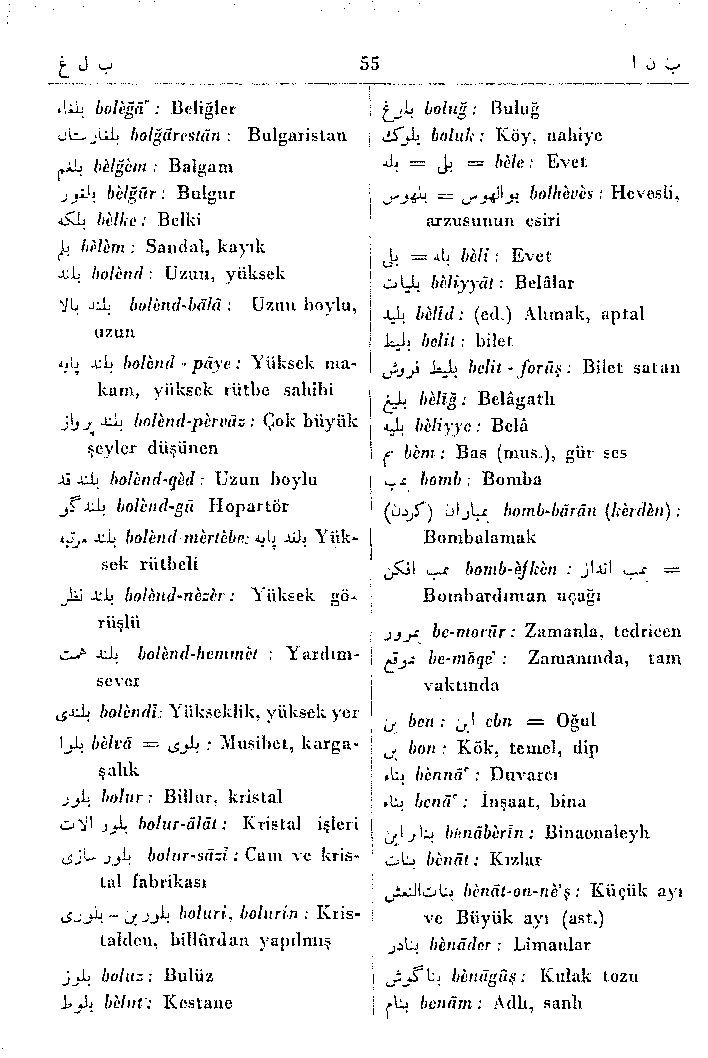 ب ل غ
55
ب ن ا
بلغاء bolèğā' : Beliğler
بلغارستان bolğārestān : Bulgaristan
بلغم bèlğèm : Balgam
بلغور bèlğūr : Bulgur
بلکه bèlke : Belki
بلم bèlèm : Sandal, kayık
بلند bolènd : Uzun, yüksek
بلند بالا bolènd-bālā : Uzun boylu,
uzun
بلند پایه bolènd - pāye : Yüksek ma-
kam, yüksek rütbe sahibi
بلند پرواز bolènd-pèrvāz : Çok büyük
şeyler düşünen
بلند قد bolènd-qèd : Uzun boylu
بلند گو bolènd-gū Hopartör
بلند مرتبه bolènd-mèrtèbe: بلند پایه Yük-
sek rütbeli
بلند نظر bolènd-nèzèr : Yüksek gö-
rüşlü
بلند همت bolènd-hemmèt : Yardım-
sever
بلندی bolèndī: Yükseklik, yüksek yer
بلوا bèlvā = بلوی : Musibet, karga-
şalık
بلور bolur : Billur, kristal
بلور الات bolur-ālāt : Kristal işleri
بلور سازی bolur-sāzī : Cam ve kris-
tal fabrikası
بلورین - بلوری boluri, bolurin : Kris-
talden, billûrdan yapılmış
بلوز boluz : Bulüz
بلوط bèlut : Kestane
بلوغ boluğ : Buluğ
بلوک boluk : Köy, nahiye
بله = بل = bèle : Evet
بوالهوس = بلهوس bolhèvès : Hevesli,
arzusunun esiri
بلی = بله bèli : Evet
بلیات bèliyyāt : Belâlar
بلید bèlid : (ed.) Ahmak, aptal
بلیط belit : bilet
بلیط فروش belit - forūş : Bilet satan
بلیغ bèliğ : Belâgatlı
بلیه bèliyye : Belâ
بم bèm : Bas (mus.), gür ses
بمب bomb : Bomba
بمباران (کردن) bomb-bārān (kèrdèn) :
Bombalamak
بمب افکن bomb-èfkèn : بمب انداز =
Bombardıman uçağı
بمرور be-morūr : Zamanla, tedricen
بموقع be-mōqe' : Zamanında, tam
vaktında
بن ben : ابن ebn = Oğul
بن bon : Kök, temel, dip
بناء bènnā' : Duvarcı
بناء benā' : İnşaat, bina
بنابراین bènābèrin : Binaenaleyh
بنات bènāt : Kızlar
بنات‌النعش bènāt-on-nè'ş : Küçük ayı
ve Büyük ayı (ast.)
بنادر bènāder : Limanlar
بناگوش bènāgūş : Kulak tozu
بنام benām : Adlı, sanlı